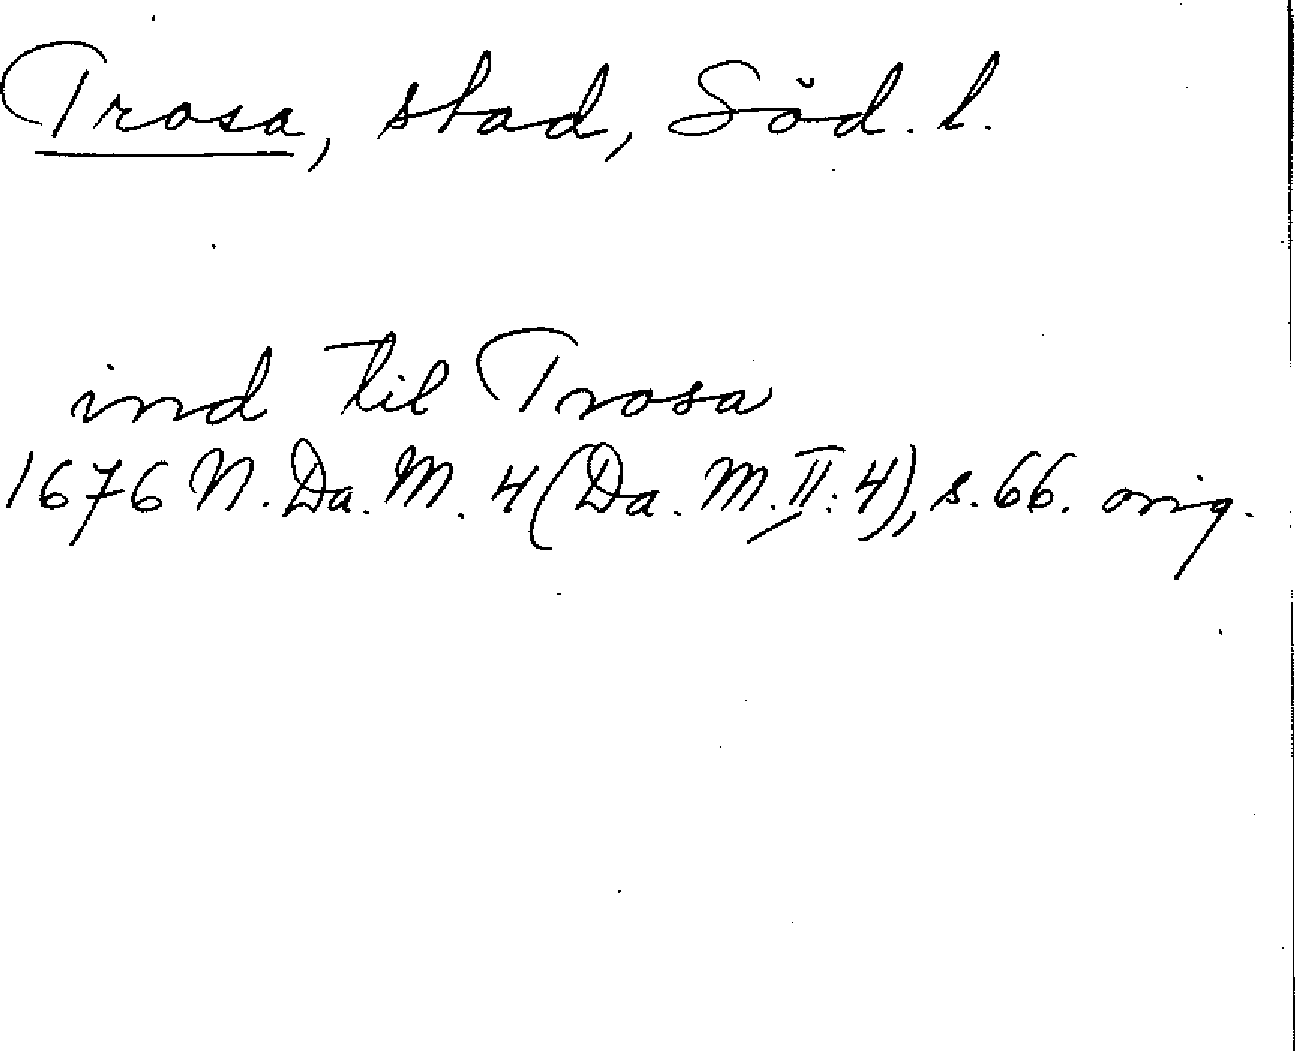 Trosa, stad, Söd. l.
ind til Trosa
1676 N. Da. M. 4 (Da. M. II: 4), s. 66. orig.